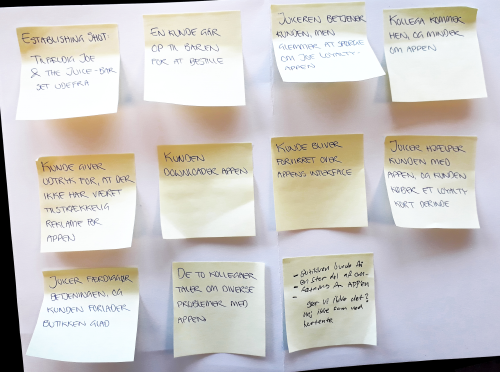 ESTABLISHING SHOT:
TILFÆLDIG JOE
& THE JUICE-BAR
SET UDEFRA
EN KUNDE GÅR
OP TIL BAREN
FOR AT BESTILLE
JUICEREN BETJENER
KUNDEN, MEN
GLEMMER AT SPØRGE
OM JOE LOYALTY-
APPEN
KOLLEGA KOMMER
HEN, OG MINDER
OM APPEN
KUNDE GIVER
UDTRYK FOR, AT DER
IKKE HAR VÆRET
TILSTRÆKKELIG
REKLAME FOR
APPEN
KUNDEN
DOWNLOADER APPEN
KUNDE BLIVER
FORVIRRET OVER
APPENS INTERFACE
JUICER HJÆLPER
KUNDEN MED
APPEN, OG KUNDEN
KØBER ET LOYALTY
KORT DERINDE
JUICER FÆRDIGGØR
BETJENINGEN, OG
KUNDEN FORLADER
BUTIKKEN GLAD
DE TO KOLLEGAER
TALER OM DIVERSE
PROBLEMER MED
APPEN
- Butikken burde få
en stor del af om-
sætning fra appen
-
gør vi ikke det?
Nej ikke som ved
kontante